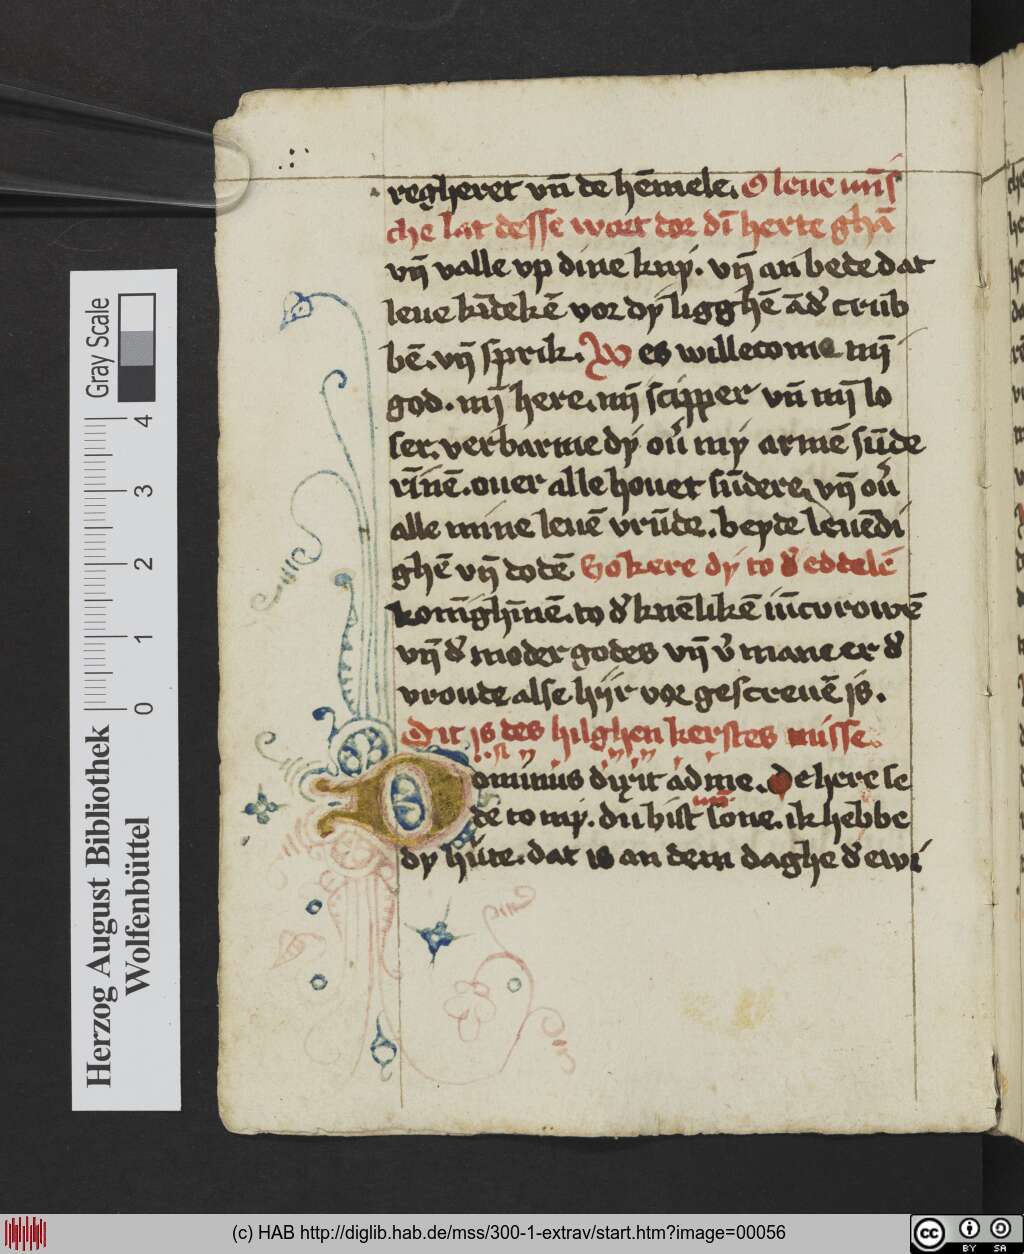 regheret vn̄ de hēmele. O leue mīs
che lat desse wort dor dī herte ghā
vn̄ valle vp dine kny. vn̄ an bede dat
leue kīdekē vor dy ligghē
bē. vn̄ sprik. Wes willecome mī
god. mī here. mī scipper vn̄ mī lo
ser. verbarme dy ou̓ my armē sūde
rīnē. ouer alle houet sūdere, vn̄ ou̓
alle mine leuē vrūde. beyde leuēdi
ghē vn̄ dodē. Gokere dy to d̓ eddelē
konīghīnē. to d̓ knēlikē iūcvrowē
vn̄ d̓ moder godes vn̄ er d̓
vroude alse hyr vor gescreuē is.
Dit is des hilghen kerstes misse.
Dominus dixit ad me. De here se
de to my. du bist mī sone. ik hebbe
dy hute. dat is an dem daghe d̓ ewi
Herzog August Bibliothek
Wolfenbüttel
0 1 2 3 4
Gray Scale
(c) HAB http://diglib.hab.de/mss/300-1-extrav/start.htm?image=00056
cc BY SA